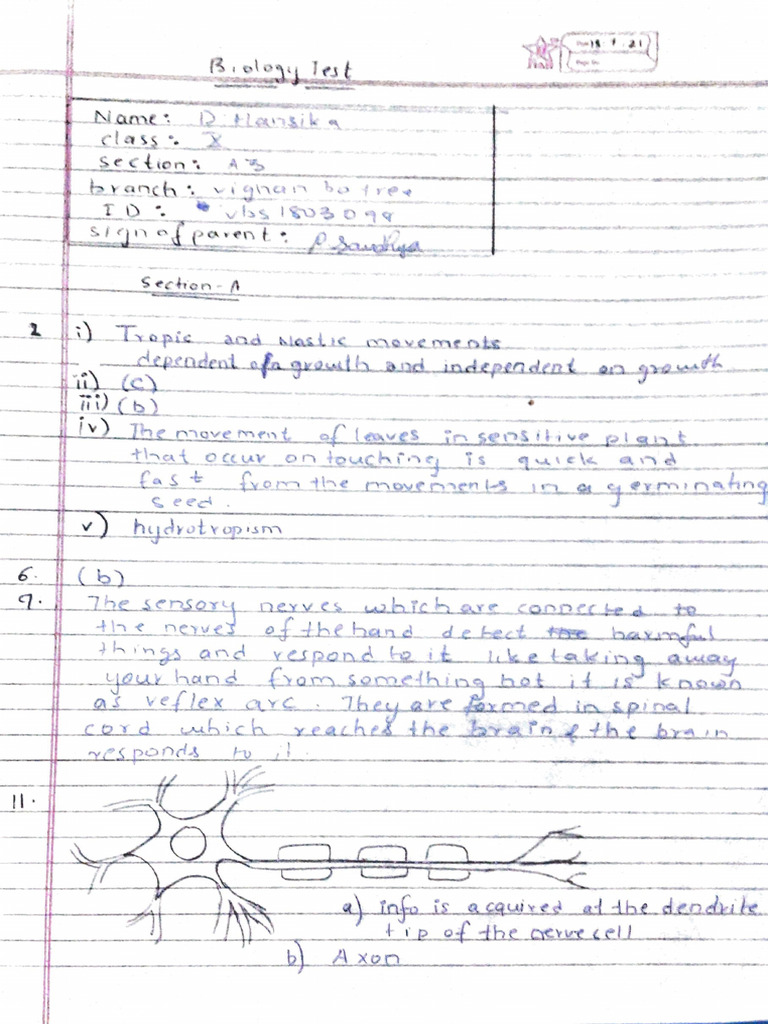 18 . 9 . 21
Biology Test
Name: D Hansika
class: X
section: A3
branch: vignan bo tree
ID: vbs1803098
sign of parent: P Sandhya
Section - A
2 i) Tropic and Nastic movements
dependent of growth and independent on growth
ii) (c)
iii) (b)
iv) The movement of leaves in sensitive plant
that occur on touching is quick and
fast from the movements in a germinating
seed.
v) hydrotropism
6. (b)
9. The sensory nerves which are connected to
the nerves of the hand detect the harmful
things and respond to it like taking away
your hand from something hot it is known
as reflex arc. They are formed in spinal
cord which reaches the brain & the brain
responds to it.
11.
a) info is acquired at the dendrite
tip of the nerve cell
b) Axon